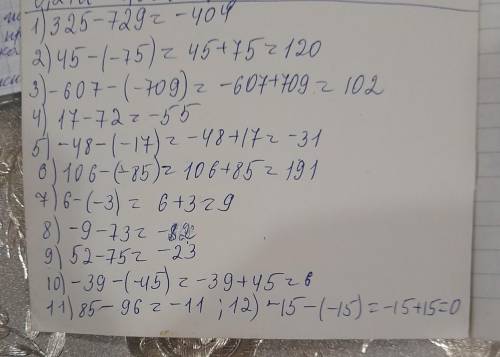 1) 325-729= -404
2) 45-(-75)= 45+75=120
3) -607-(-709)= -607+709= 102
4) 17-72=-55
5) -48-(-17)=-48+17=-31
6) 106-(-85)= 106+85=191
7) 6-(-3)= 6+3=9
8) -9-73= -82
9) 52-75= -23
10) -39-(-45)=-39+45=6
11) 85-96=-11 ; 12) -15-(-15)=-15+15=0